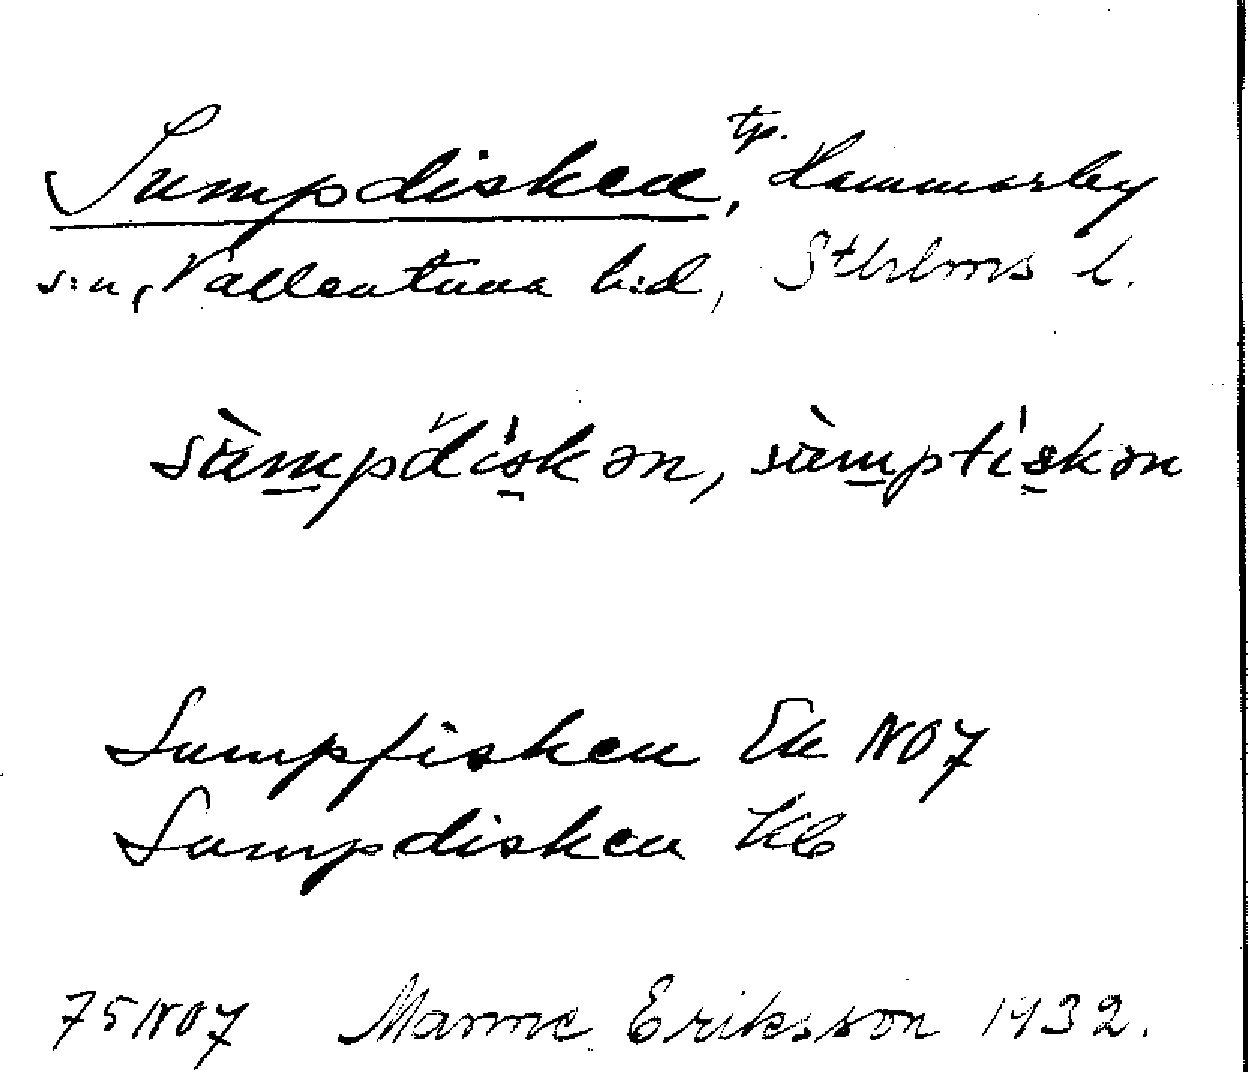 Sumpdisken, tp. Hammarby
s:n, Vallentuna h:d, Sthlms l.
sùmpdiskən, sùmptiskən
Sumpfisken Ek NO7
Sumpdisken Kb
75NO7 Manne Eriksson 1932.